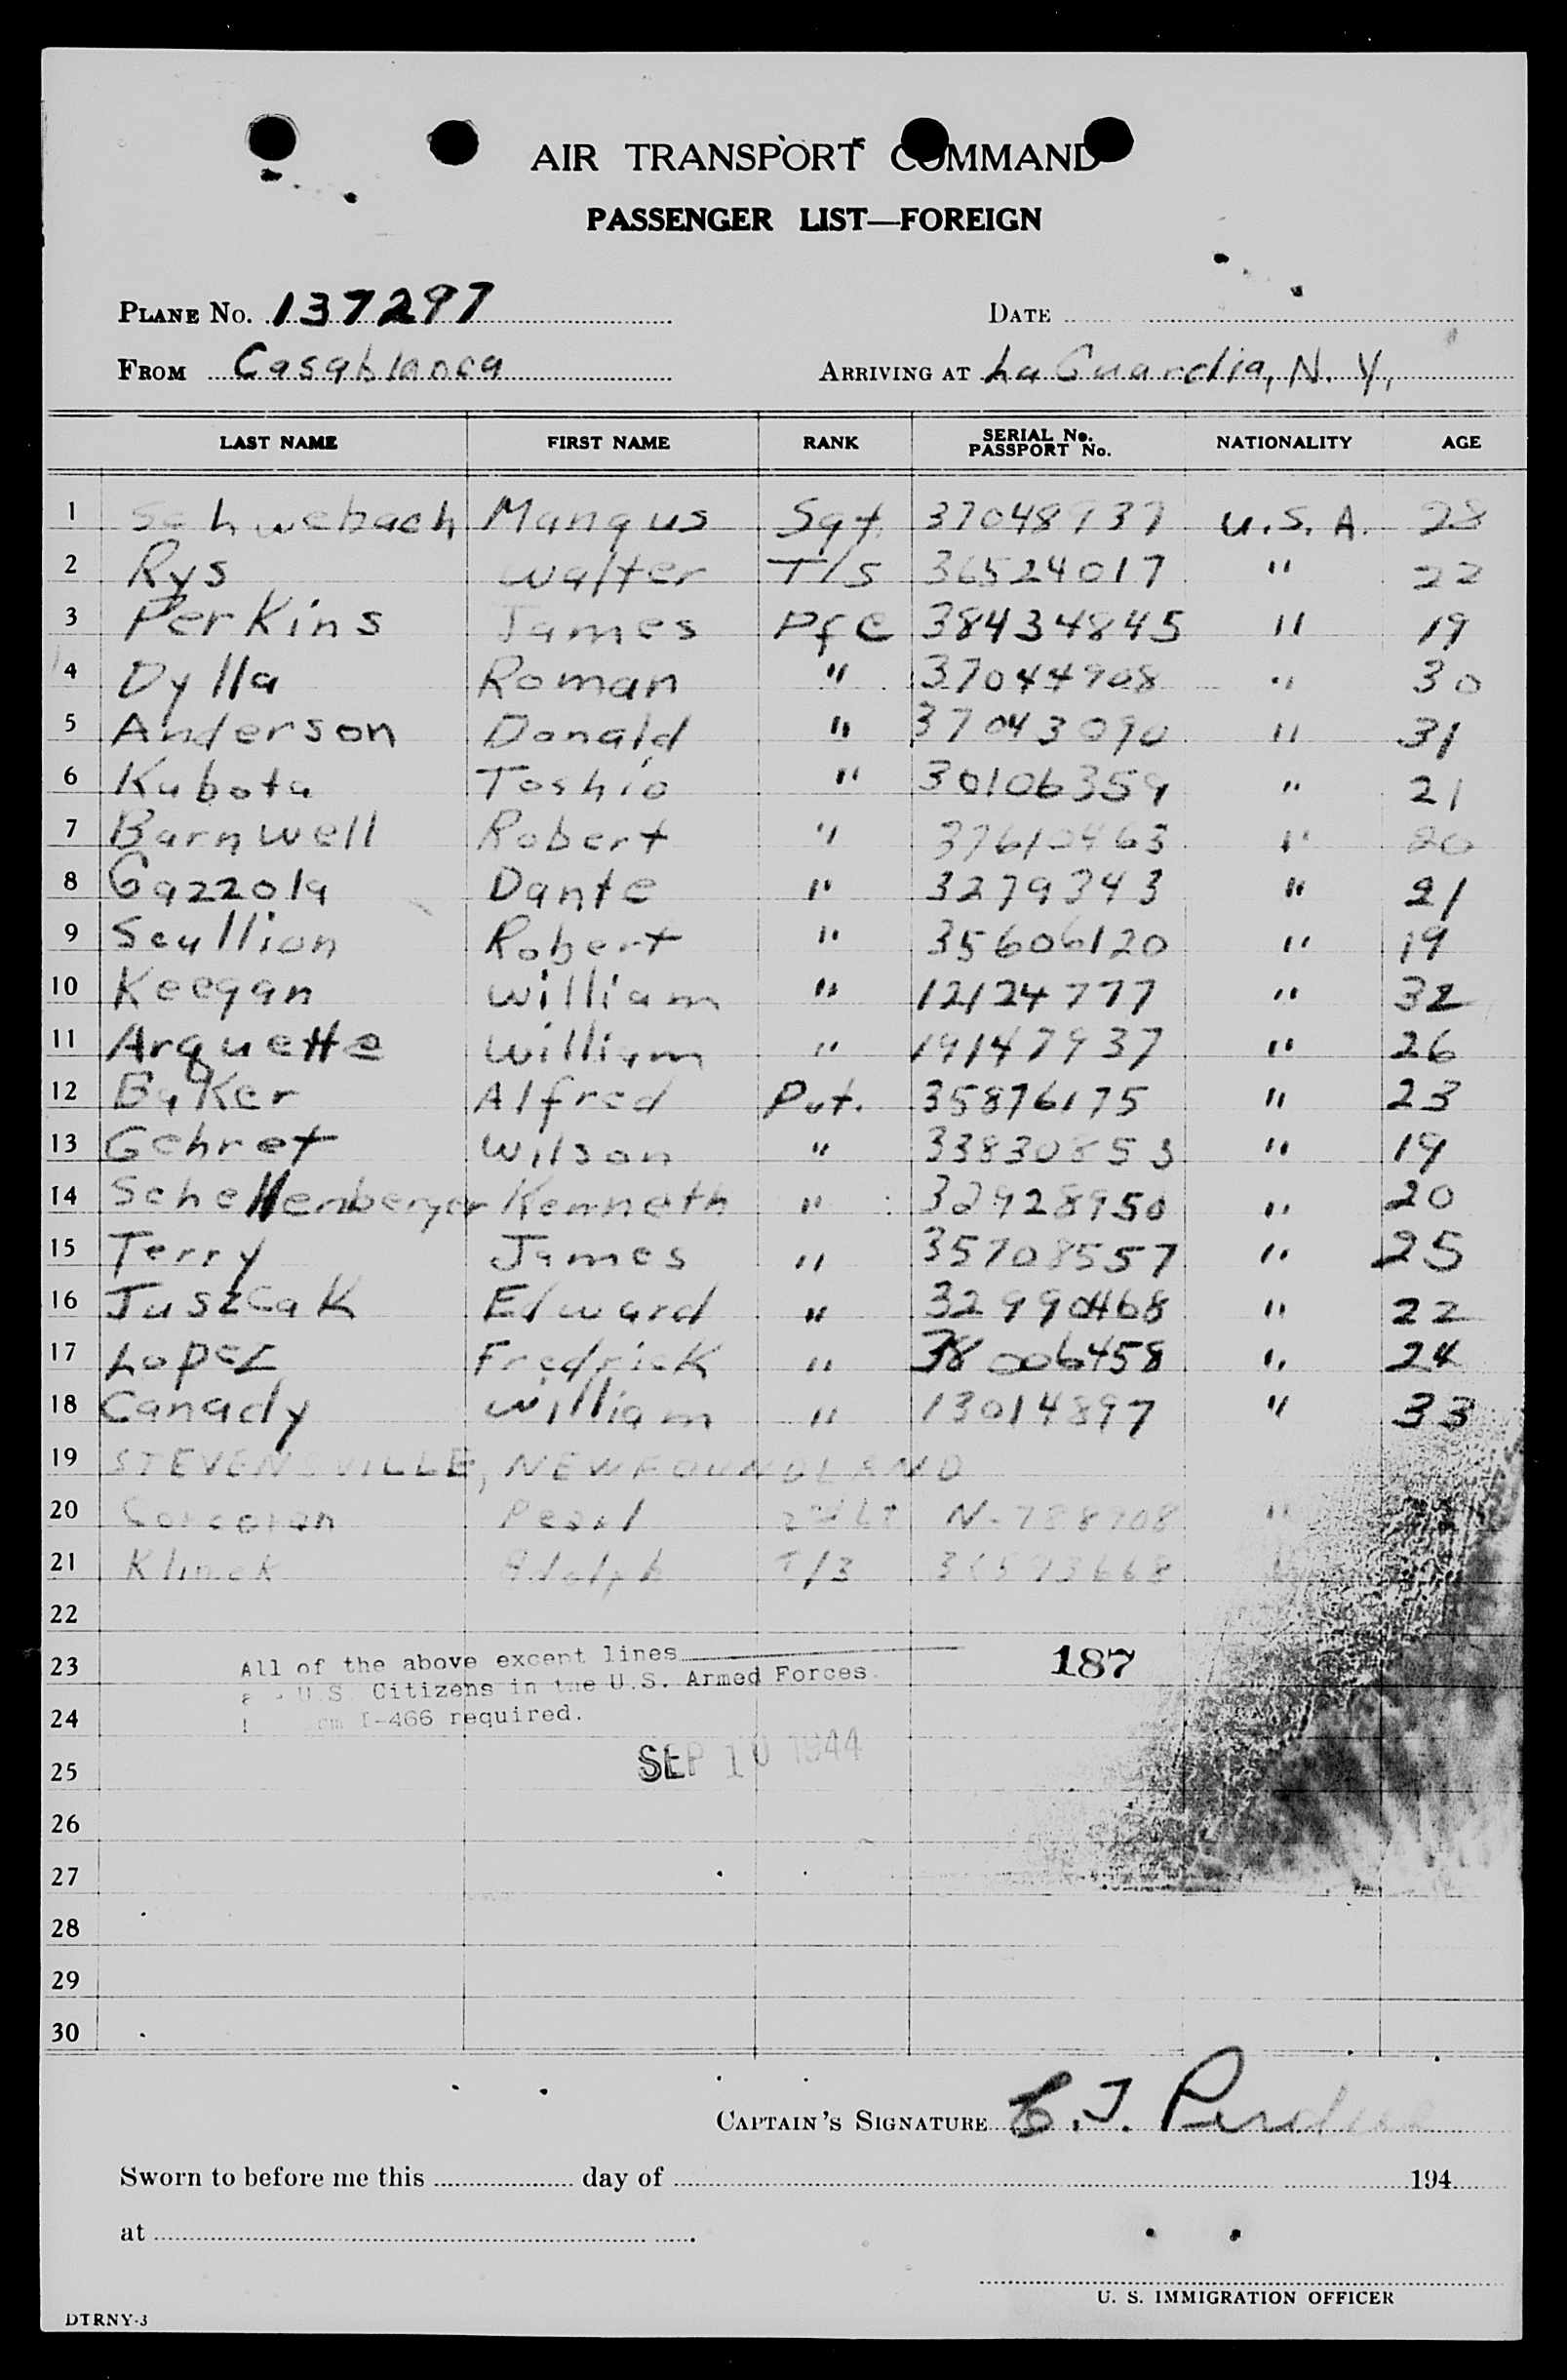 AIR TRANSPORT COMMAND
PASSENGER LIST—FOREIGN
PLANE No. 137297 DATE
FROM Casablanca ARRIVING AT La Guardia, N. Y.
LAST NAME FIRST NAME RANK SERIAL No. PASSPORT No. NATIONALITY AGE
1 Schwebach Mangus Sgt. 37048937 U.S.A. 28
2 Rys Walter T/5 36524017 " 22
3 Perkins James Pfc 38434845 " 19
4 Dylla Roman " 37044908 " 30
5 Anderson Donald " 37043090 " 31
6 Kubota Toshio " 30106359 " 21
7 Barnwell Robert " 37610463 " 20
8 Gazzola Dante " 3279343 " 21
9 Scullion Robert " 35606120 " 19
10 Keegan William " 12124777 " 32
11 Arquette William " 19147937 " 26
12 Baker Alfred Pvt. 35876175 " 23
13 Gehret Wilson " 33830853 " 19
14 Schellenberger Kenneth " 32928950 " 20
15 Terry James " 35708557 " 25
16 Juszcak Edward " 32990468 " 22
17 Lopez Fredrick " 38006458 " 24
18 Canady William " 13014897 " 33
19 STEVENSVILLE, NEWFOUNDLAND
20 Corcoran Pearl 2nd Lt N-788908 "
21 Klimek Adolph T/3 36593668
22
23 All of the above except lines 187
U.S. Citizens in the U.S. Armed Forces.
24 I-466 required.
SEP 10 1944
25
26
27
28
29
30
CAPTAIN'S SIGNATURE C. J. Perdue
Sworn to before me this day of 194
at
U. S. IMMIGRATION OFFICER
DTRNY-3